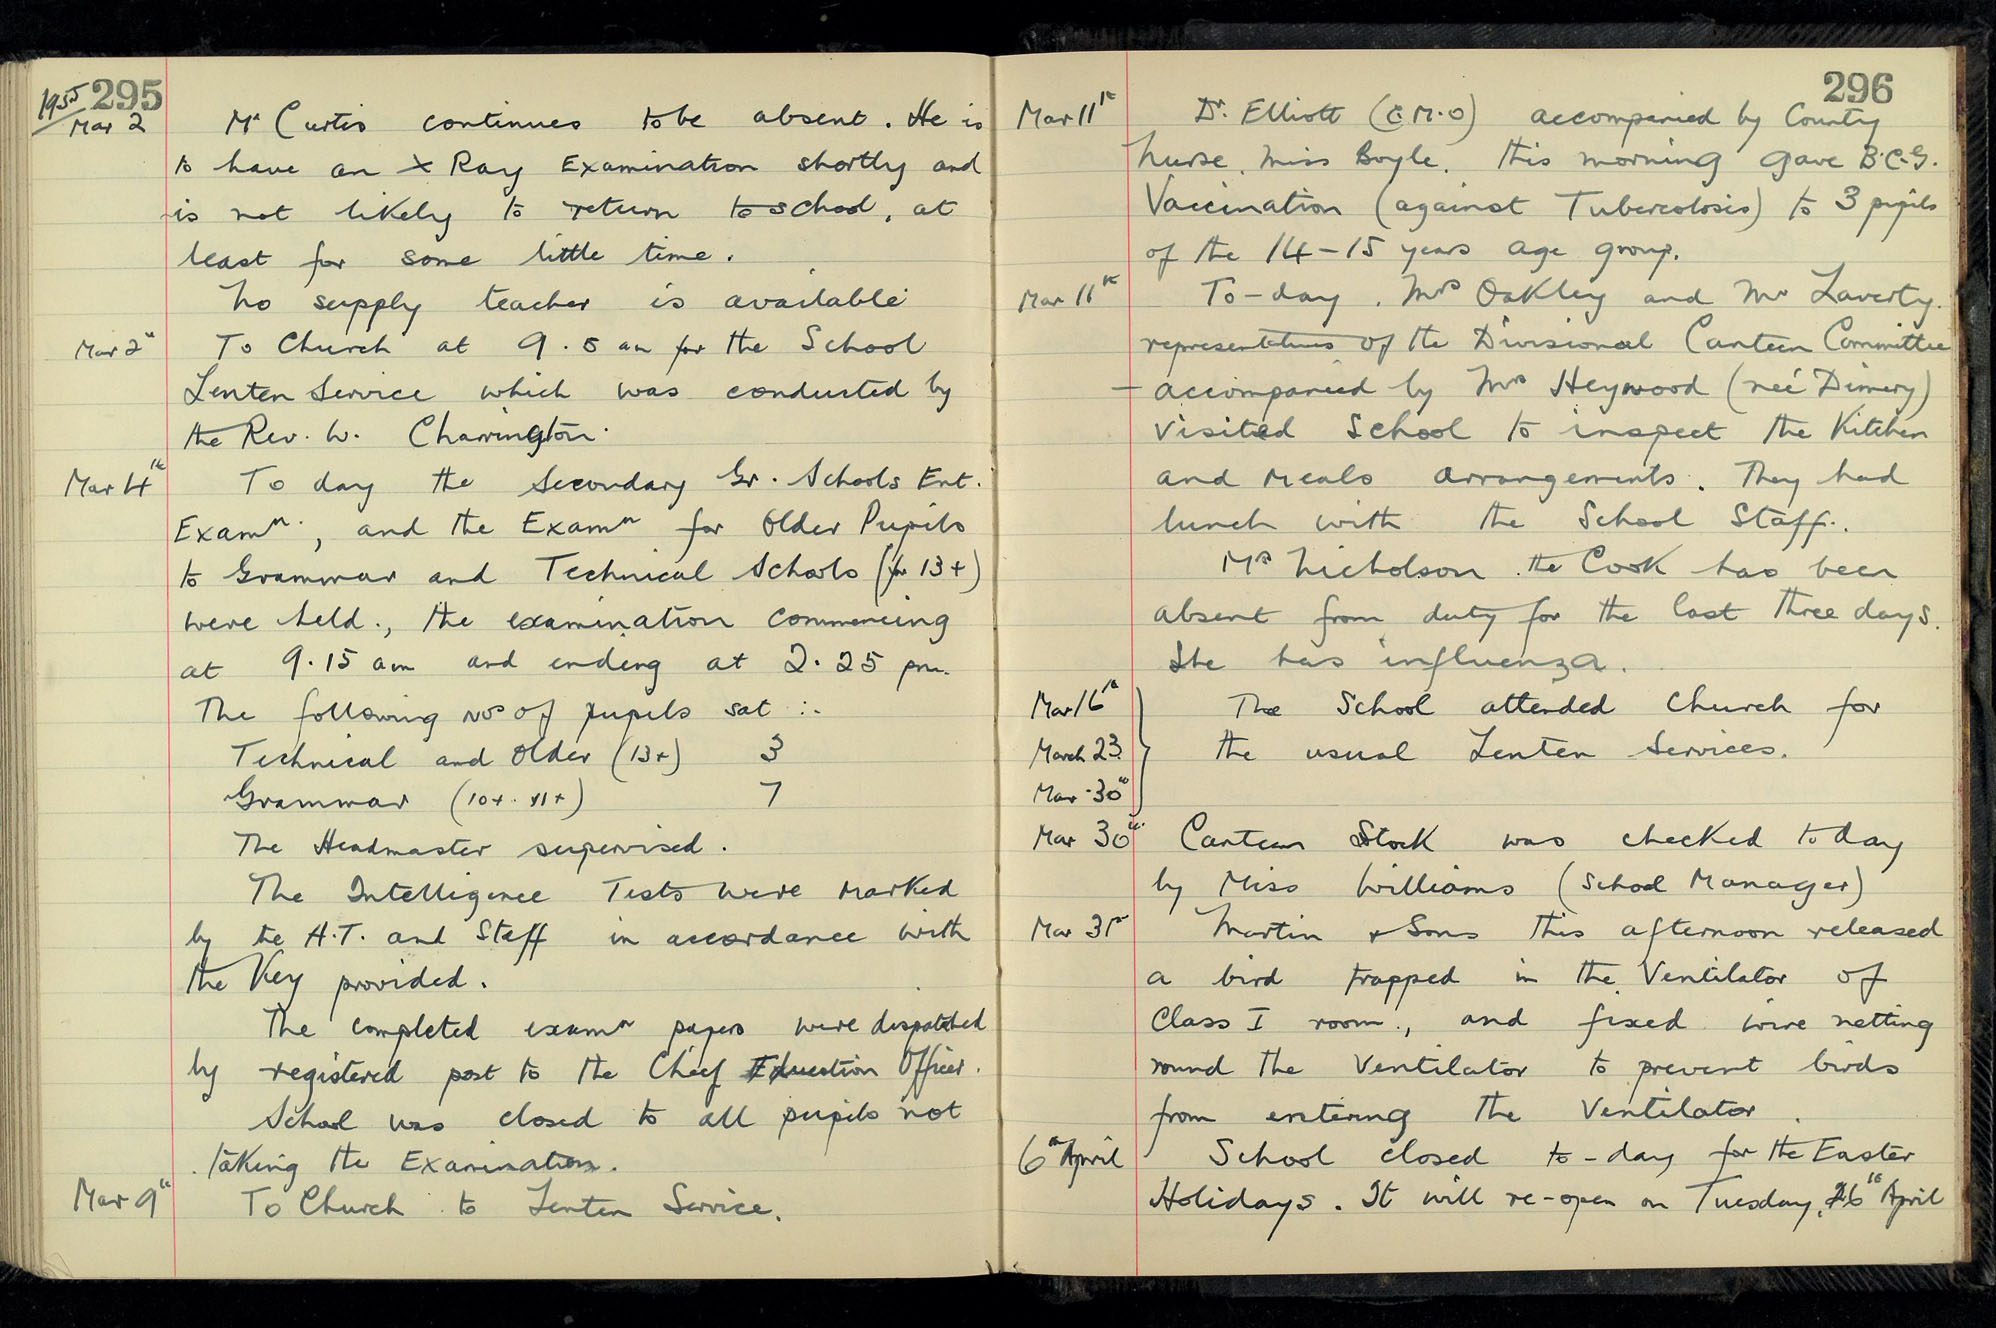 1955 295
Mar 2 Mr Curtis continues to be absent. He is
to have an X Ray Examination shortly and
is not likely to return to school, at
least for some little time.
No supply teacher is available
Mar 2nd To Church at 9.5 am for the School
Lenten Service which was conducted by
the Rev. W. Charrington.
Mar 4th To day the Secondary Gr. Schools Ent.
Examn., and the Examn for Older Pupils
to Grammar and Technical Schools (for 13+)
were held., the examination commencing
at 9.15 am and ending at 2.25 pm.
The following Nos of pupils sat :-
Technical and Older (13+) 3
Grammar (10+ & 11+) 7
The Headmaster supervised.
The Intelligence Tests were marked
by the H.T. and Staff in accordance with
the Key provided.
The completed examn papers were dispatched
by registered post to the Chief Education Officer.
School was closed to all pupils not
taking the Examination.
Mar 9th To Church to Lenten Service.
296
Mar 11th Dr. Elliott (C.M.O) accompanied by County
Nurse, Miss Boyle. this morning gave B.C.G.
Vaccination (against Tuberculosis) to 3 pupils
of the 14-15 years age group.
Mar 11th To-day, Mrs Oakley and Mr Laverty.
representatives of the Divisional Canteen Committee
- accompanied by Mrs Heywood (neé Dimery)
visited School to inspect the Kitchen
and meals arrangements. They had
lunch with the School Staff.
Mrs Nicholson the Cook has been
absent from duty for the last three days.
She has influenza.
Mar 16th The School attended Church for
March 23 the usual Lenten Services.
Mar 30th
Mar 30th Canteen Stock was checked today
by Miss Williams (School Manager)
Mar 31st Martin & Sons this afternoon released
a bird trapped in the Ventilator of
Class I room., and fixed wire netting
round the Ventilator to prevent birds
from entering the Ventilator.
6th April School closed to-day for the Easter
Holidays. It will re-open on Tuesday, 26th April